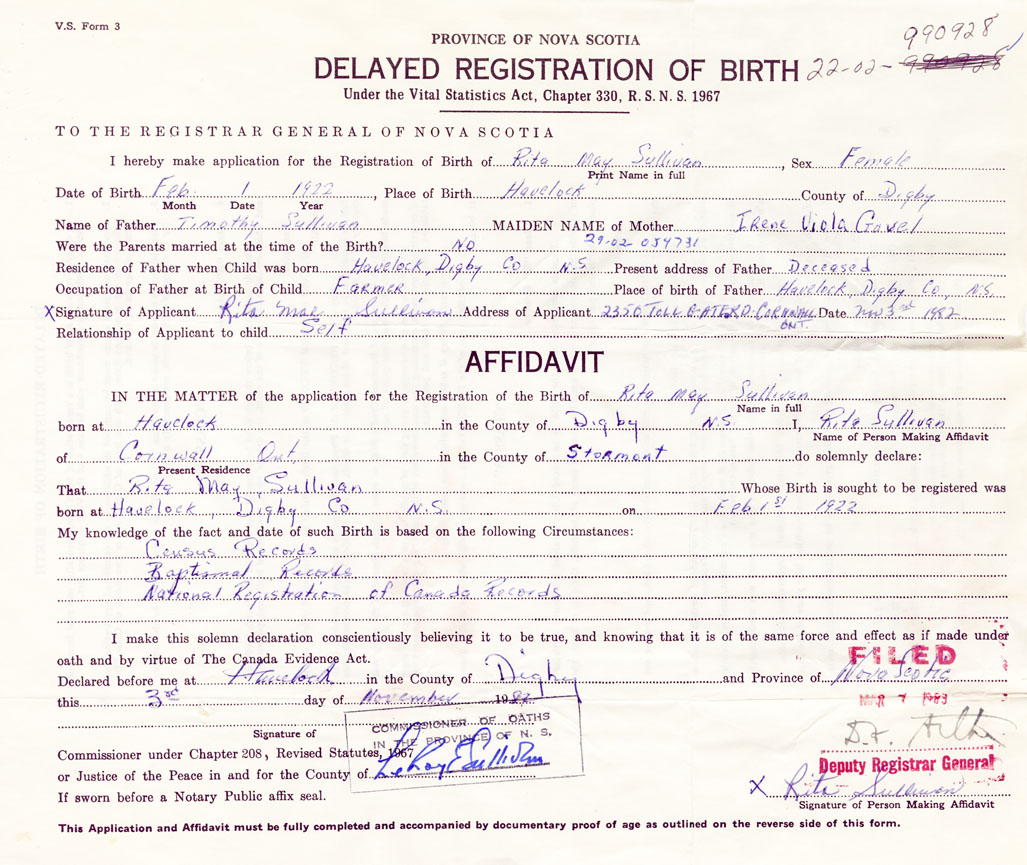 V.S. Form 3
990928
PROVINCE OF NOVA SCOTIA
DELAYED REGISTRATION OF BIRTH 22-02- 990928
Under the Vital Statistics Act, Chapter 330, R.S.N.S. 1967
TO THE REGISTRAR GENERAL OF NOVA SCOTIA
I hereby make application for the Registration of Birth of Rita May Sullivan, Sex Female
Print Name in full
Date of Birth Feb. 1 1922, Place of Birth Havelock County of Digby
Month Date Year
Name of Father Timothy Sullivan MAIDEN NAME of Mother Irene Viola Gavel
Were the Parents married at the time of the Birth? No 29-02 054731
Residence of Father when Child was born Havelock, Digby Co N.S. Present address of Father Deceased
Occupation of Father at Birth of Child Farmer Place of birth of Father Havelock, Digby Co, N.S.
X Signature of Applicant Rita Mae Sullivan Address of Applicant 2350 TOLL GATE RD. CORNWALL ONT. Date Nov 3rd 1982
Relationship of Applicant to child Self
AFFIDAVIT
IN THE MATTER of the application for the Registration of the Birth of Rita May Sullivan
Name in full
born at Havelock in the County of Digby N.S. I, Rita Sullivan
Name of Person Making Affidavit
of Cornwall Ont. in the County of Stormont do solemnly declare:
Present Residence
That Rita May Sullivan Whose Birth is sought to be registered was
born at Havelock, Digby Co N.S. on Feb 1st 1922
My knowledge of the fact and date of such Birth is based on the following Circumstances:
Census Records
Baptismal Records
National Registration of Canada Records
I make this solemn declaration conscientiously believing it to be true, and knowing that it is of the same force and effect as if made under
oath and by virtue of The Canada Evidence Act.
FILED
Declared before me at Havelock in the County of Digby and Province of Nova Scotia
this 3rd day of November 1982
MAR 7 1983
COMMISSIONER OF OATHS
IN THE PROVINCE OF N. S.
Signature of
Commissioner under Chapter 208, Revised Statutes, 1967
LeRoy E Sullivan
or Justice of the Peace in and for the County of
Deputy Registrar General
X Rita Sullivan
If sworn before a Notary Public affix seal.
Signature of Person Making Affidavit
This Application and Affidavit must be fully completed and accompanied by documentary proof of age as outlined on the reverse side of this form.